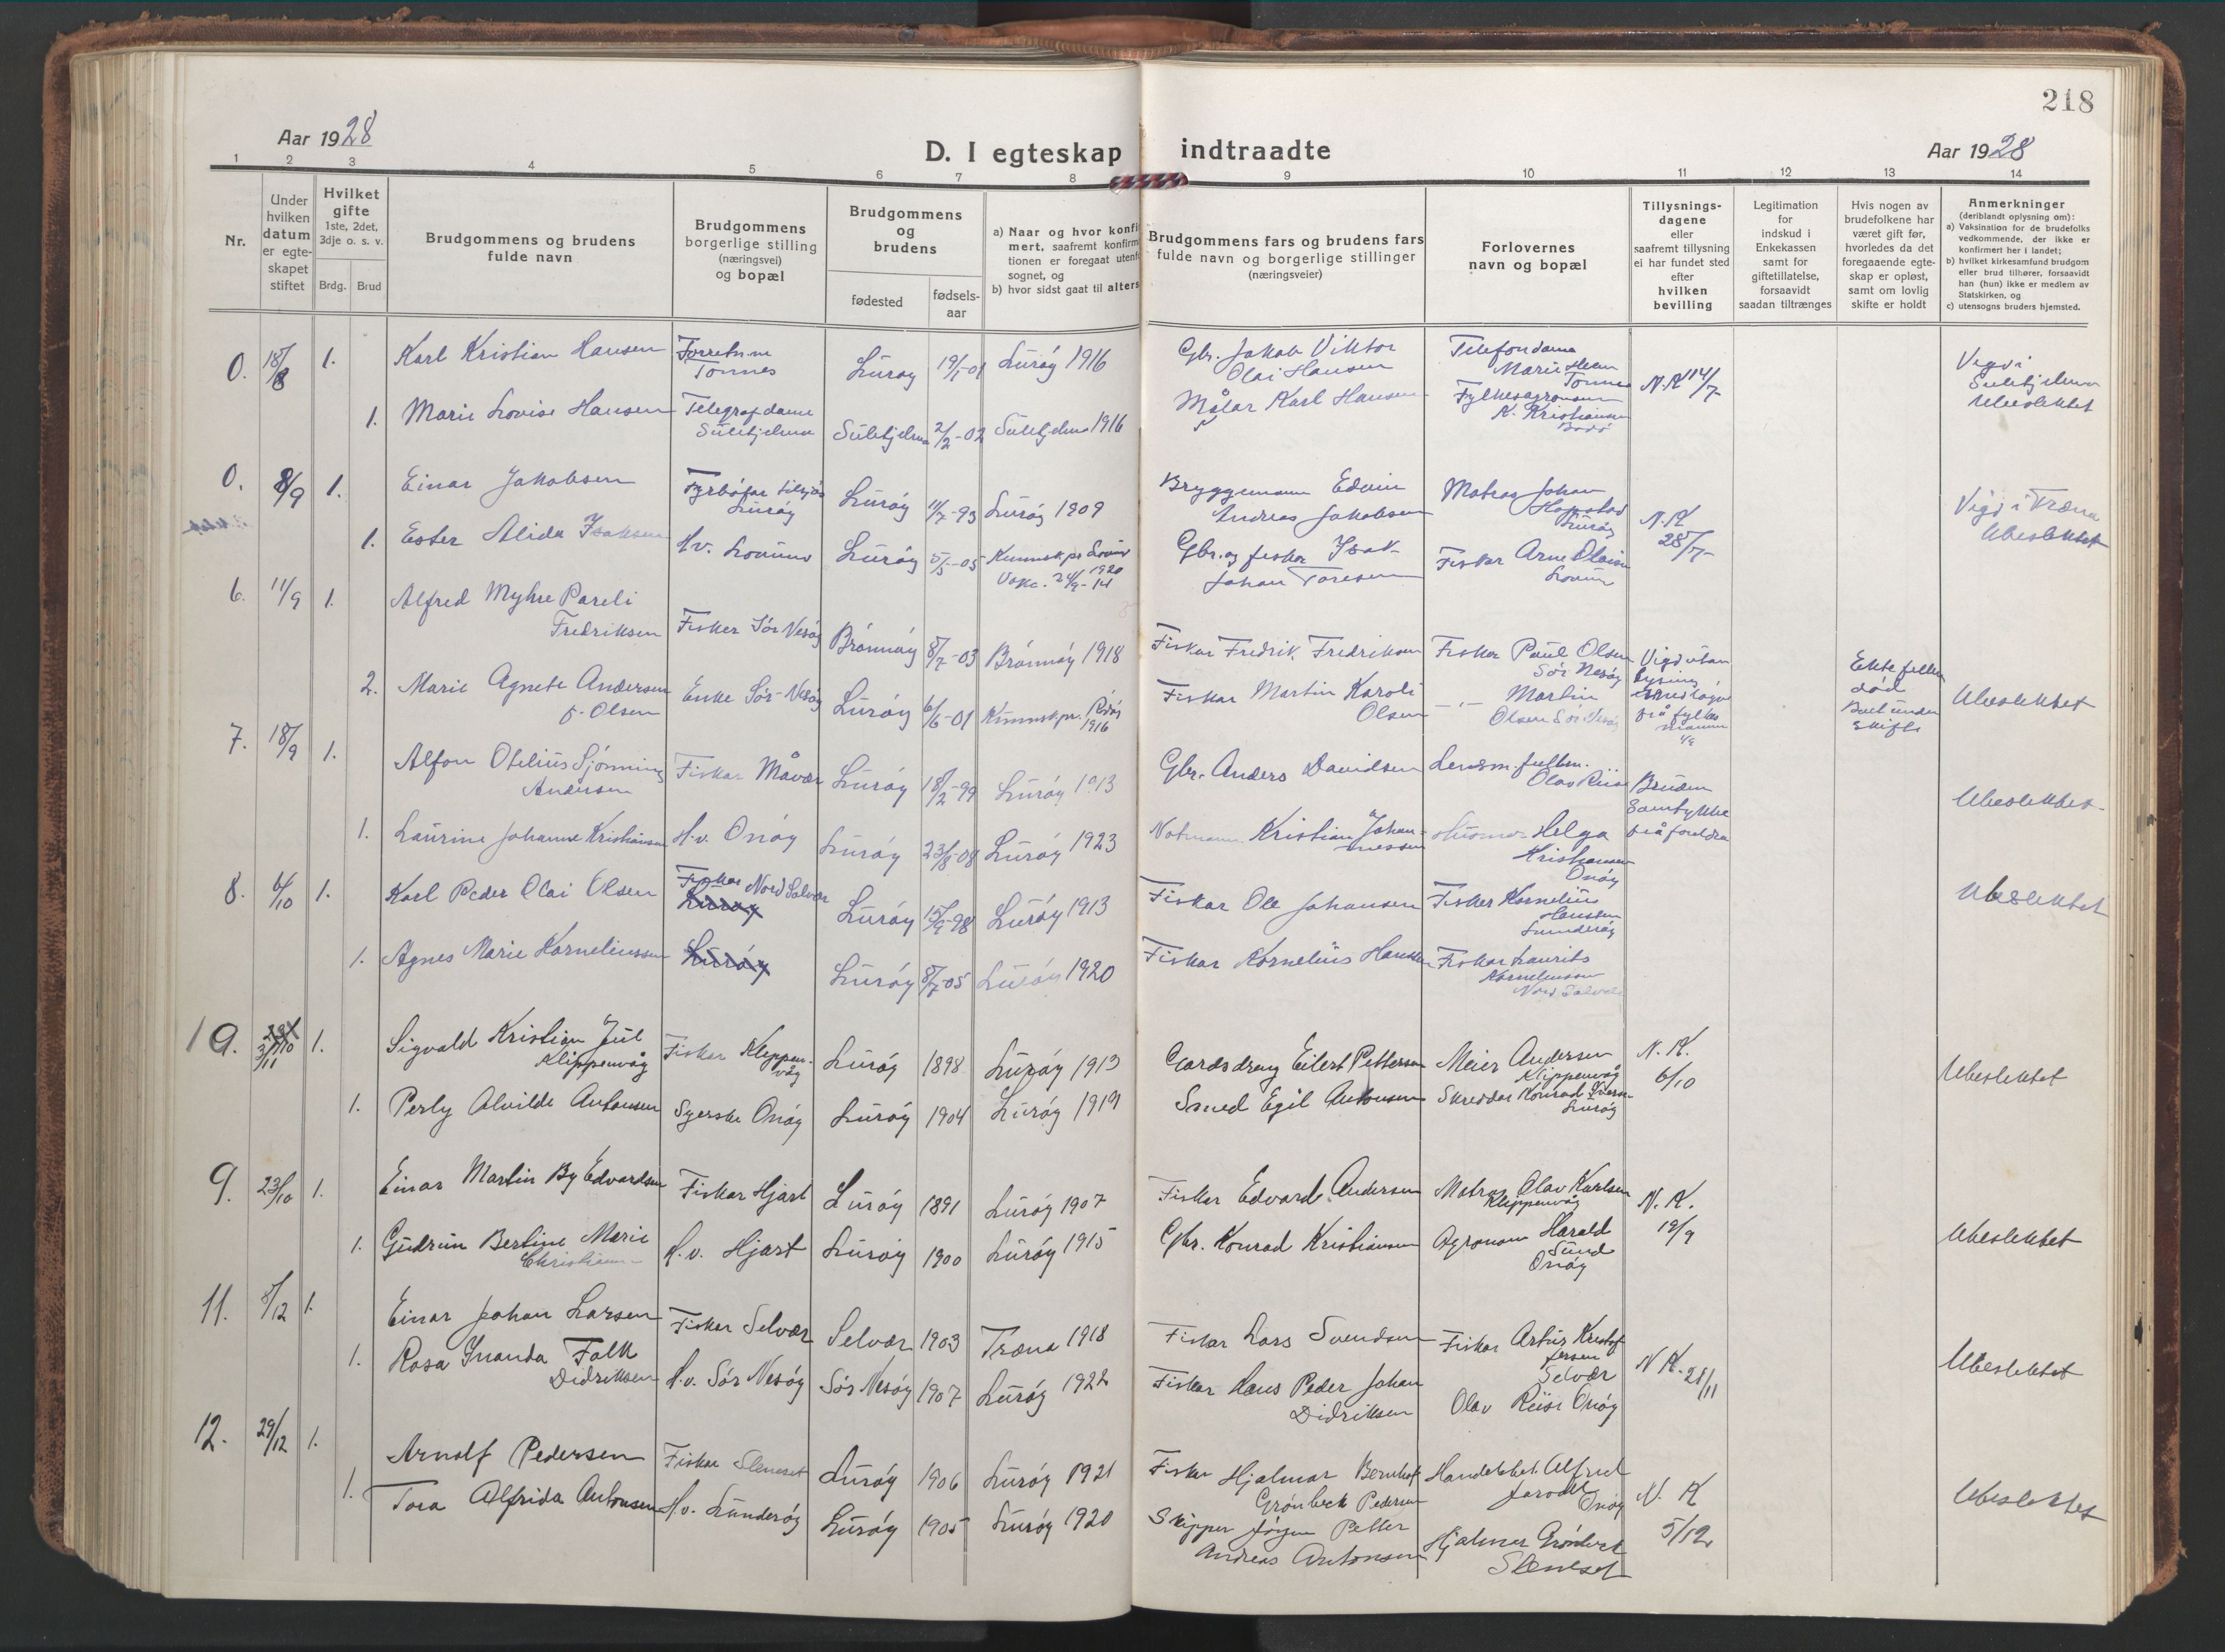 218
Aar 1928
D. I egteskap indtraadte
Aar 1928
1 2 3 4 5 6 7 8 9 10 11 12 13 14
Nr.
Under
hvilken
datum
er egte-
skapet
stiftet
Hvilket
gifte
1ste, 2det,
3dje o. s. v.
Brdg. Brud
Brudgommens og brudens
fulde navn
Brudgommens
borgerlige stilling
(næringsvei)
og bopæl
Brudgommens
og
brudens
fødested
fødsels-
aar
a) Naar og hvor konfi
mert, saafremt konfirm
tionen er foregaat utenf
sognet, og
b) hvor sidst gaat til alters
Brudgommens fars og brudens fars
fulde navn og borgerlige stillinger
(næringsveier)
Forlovernes
navn og bopæl
Tillysnings-
dagene
eller
saafremt tillysning
ei har fundet sted
efter
hvilken
bevilling
Legitimation
for
indskud i
Enkekassen
samt for
giftetillatelse,
forsaavidt
saadan tiltrænges
Hvis nogen av
brudefolkene har
været gift før,
hvorledes da det
foregaaende egte-
skap er opløst,
samt om lovlig
skifte er holdt
Anmerkninger
(deriblandt oplysning om):
a) Vaksination for de brudefolks
vedkommende, der ikke er
konfirmert her i landet;
b) hvilket kirkesamfund brudgom
eller brud tilhører, forsaavidt
han (hun) ikke er medlem av
Statskirken, og
c) utensogns bruders hjemsted.
0. 18/8 1. Karl Kristian Hansen
Tonnes
Lurøy 19/1-01 Lurøy 1916
Gbr. Jakob Viktor
Olai Hansen
Telefondame
Marie
Tonnes
N.K 14/7
Vigd i
Sulitjelma
Ubeslektet
1. Marie Lovise Hansen
Telegrafdame
Sulitjelma
Sulitjelma 2/2-02 Sulitjelma 1916
Målar Karl Hansen
Fylkesagronom
K. Kristiansen
Bodø
0. 8/9 1. Einar Jakobsen
Fyrbøtar
Lurøy
Lurøy 11/7-93 Lurøy 1909
Bryggemann Edvin
Andreas Jakobsen
Matros Johan
Hopstad
Lurøy
N.K
28/7-
Vigd i Træna
Ubeslektet
1. Ester Alida Isaksen
H.v. Lovund
Lurøy 5/5-05
Kunnsk.pr. Lovund
1920
Vakc. 24/9-14
Gbr. og fiskar Isak
Johan Toresen
Fiskar Arne Olaisen
Lovund
6. 11/9 1. Alfred Myhre Pareli
Fredriksen
Fisker Sør-Nesøy
Brønnøy 8/7-03 Brønnøy 1918
Fiskar Fredrik Fredriksen
Fisker Paul Olsen
Sør Nesøy
Vigd utan
lysing
frå fylkes
mannen
Ektefellen
død
Buet under
skifte
Ubeslektet
2. Marie Agnete Andersen
f. Olsen
Enke Sør-Nesøy
Lurøy 6/6-01
Kunnsk.pr. Rødøy
1916
Fiskar Martin Karoli
Olsen
-"- Martin
Olsen Sør Nesøy
7. 18/9 1. Alfon Otelius Sjønning
Andersen
Fiskar Måvær
Lurøy 18/2-99 Lurøy 1913
Gbr. Anders Davidsen
Lensm.fullm.
Olav Riise
Bruden
Samtykke
frå foreldra
Ubeslektet
1. Laurine Johanne Kristiansen
H.v. Onøy
Lurøy 23/8-08 Lurøy 1923
Notmann Kristian Johan-
nessen
Husmor Helga
Kristiansen
Onøy
8. 6/10 1. Karl Peder Olai Olsen
Fiskar Nord Solvær
Lurøy
Lurøy 15/9-98 Lurøy 1913
Fiskar Ole Johansen
Fisker Kornelius
Hanssen
Sunderøy
Ubeslektet
1. Agnes Marie Korneliussen
Lurøy
Lurøy 8/7-05 Lurøy 1920
Fiskar Kornelius Hanssen
Fiskar Laurits
Korneliussen
Nord Solvær
10. 3/11 1. Sigvald Kristian Jul
Klippenvåg
Fisker Klippen-
våg
Lurøy 1898 Lurøy 1913
Gardsdreng Eilert Pettersen
Meier Andersen
Klippenvåg
N.K.
6/10
Ubeslektet
1. Perly Alvilde Antonsen
Syerske Onøy
Lurøy 1904 Lurøy 1919
Smed Egil Antonsen
Skreddar Konrad
Lurøy
9. 23/10 1. Einar Martin By Edvardsen
Fiskar Hjart
Lurøy 1891 Lurøy 1907
Fiskar Edvard Andersen
Matros Olav Karlsen
Klippenvåg
N.K.
19/9
Ubeslektet
1. Gudrun Berline Marie
Christiansen
H.v. Hjart
Lurøy 1900 Lurøy 1915
Gbr. Konrad Kristiansen
Agronom Harald
Sund
Onøy
11. 8/12 1. Einar Johan Larsen
Fiskar Selvær
Selvær 1903 Træna 1918
Fiskar Lars Svendsen
Fiskar Artur Kristof
fersen
Selvær
N.K. 21/11
Ubeslektet
1. Rosa Inanda Falk
Didriksen
H.v. Sør Nesøy
Sør Nesøy 1907 Lurøy 1922
Fiskar Hans Peder Johan
Didriksen
Olav Riise Onøy
12. 29/12 1. Arnolf Pedersen
Fiskar Sleneset
Lurøy 1906 Lurøy 1921
Fiskar Hjalmar Bernhof
Grønbeck Pedersen
Handelsbet. Alfred
Onøy
N. K
5/12
Ubeslektet
1. Tora Alfrida Antonsen
H.v. Sunderøy
Lurøy 1905 Lurøy 1920
Skipper Jørgen Petter
Andreas Antonsen
Hjalmar Grønbeck
Sleneset